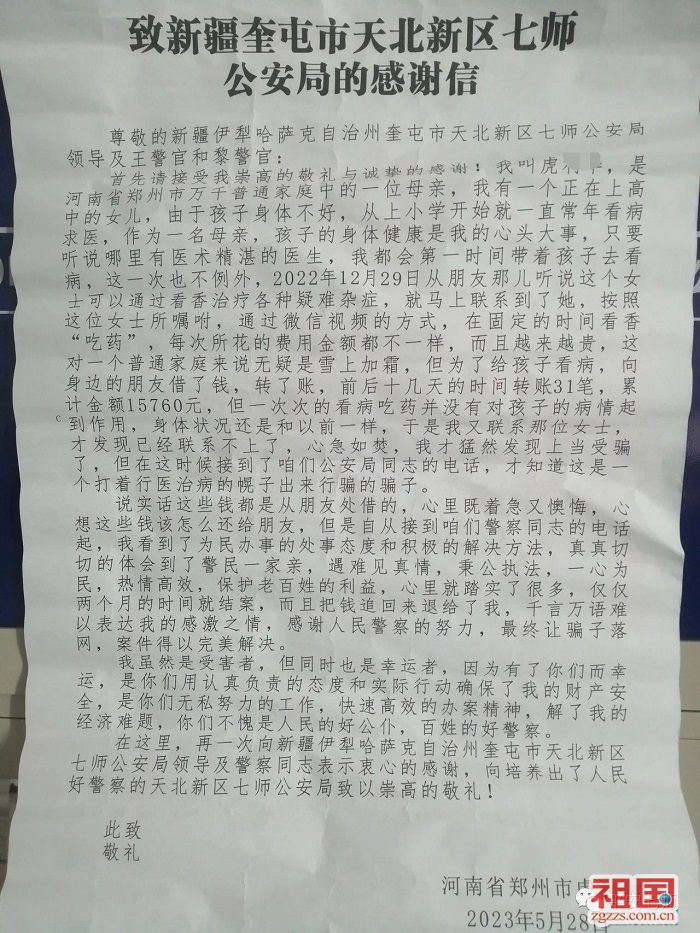 致新疆奎屯市天北新区七师
公安局的感谢信
尊敬的新疆伊犁哈萨克自治州奎屯市天北新区七师公安局
领导及王警官和黎警官：
首先请接受我崇高的敬礼与诚挚的感谢！我叫虎 ，是
河南省郑州市万千普通家庭中的一位母亲，我有一个正在上高
中的女儿，由于孩子身体不好，从上小学开始就一直常年看病
求医，作为一名母亲，孩子的身体健康是我的心头大事，只要
听说哪里有医术精湛的医生，我都会第一时间带着孩子去看
病，这一次也不例外，2022年12月29日从朋友那儿听说这个女
士可以通过看香治疗各种疑难杂症，就马上联系到了她，按照
这位女士所嘱咐，通过微信视频的方式，在固定的时间看香
“吃药”，每次所花的费用金额都不一样，而且越来越贵，这
对一个普通家庭来说无疑是雪上加霜，但为了给孩子看病，向
身边的朋友借了钱，转了账，前后十几天的时间转账31笔，累
计金额15760元，但一次次的看病吃药并没有对孩子的病情起
到作用，身体状况还是和以前一样，于是我又联系那位女士，
才发现已经联系不上了，心急如焚，我才猛然发现上当受骗
了，但在这时候接到了咱们公安局同志的电话，才知道这是一
个打着行医治病的幌子出来行骗的骗子。
说实话这些钱都是从朋友处借的，心里既着急又懊悔，心
想这些钱该怎么还给朋友，但是自从接到咱们警察同志的电话
起，我看到了为民办事的处事态度和积极的解决方法，真真切
切的体会到了警民一家亲，遇难见真情，秉公执法，一心为
民，热情高效，保护老百姓的利益，心里就踏实了很多，仅仅
两个月的时间就结案，而且把钱追回来退给了我，千言万语难
以表达我的感激之情，感谢人民警察的努力，最终让骗子落
网，案件得以完美解决。
我虽然是受害者，但同时也是幸运者，因为有了你们而幸
运，是你们用认真负责的态度和实际行动确保了我的财产安
全，是你们无私努力的工作，快速高效的办案精神，解了我的
经济难题，你们不愧是人民的好公仆，百姓的好警察。
在这里，再一次向新疆伊犁哈萨克自治州奎屯市天北新区
七师公安局领导及警察同志表示衷心的感谢，向培养出了人民
好警察的天北新区七师公安局致以崇高的敬礼！
此致
敬礼
河南省郑州市虎
2023年5月28日
祖国
zgzzs.com.cn